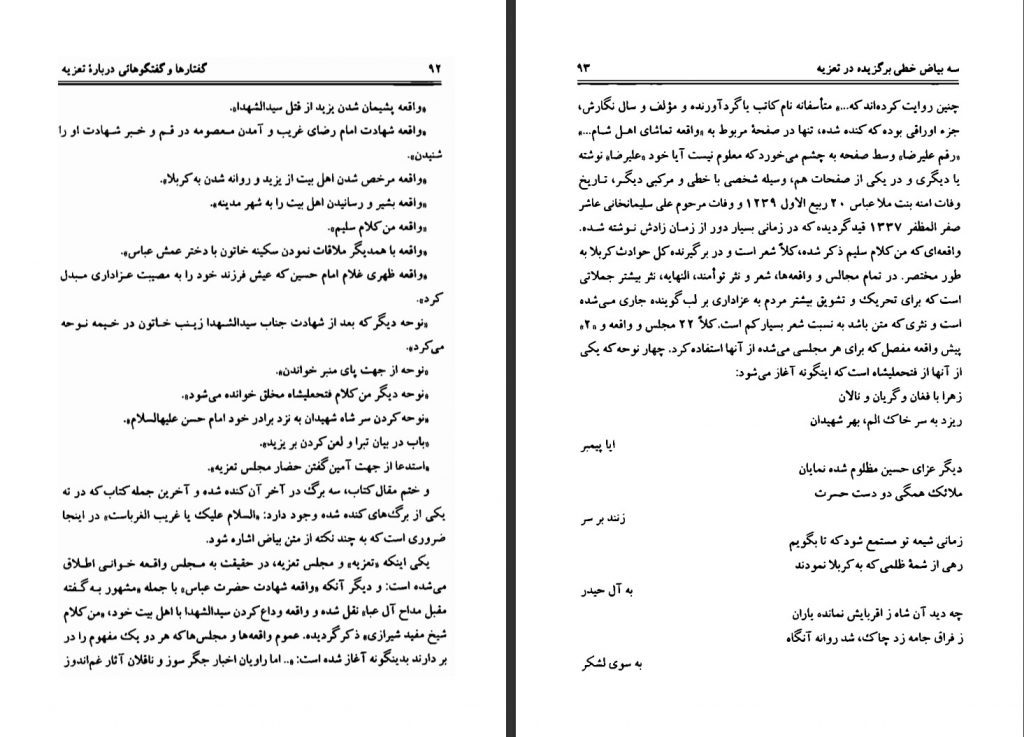 ۹۲ گفتارها و گفتگوهائی دربارهٔ تعزیه
«واقعه پشیمان شدن یزید از قتل سیدالشهدا».
«واقعه شهادت امام رضای غریب و آمدن معصومه در قم و خبر شهادت او را
شنیدن».
«واقعه مرخص شدن اهل بیت از یزید و روانه شدن به کربلا».
«واقعه بشیر و رسانیدن اهل بیت را به شهر مدینه».
«واقعه من کلام سلیم».
«واقعه با همدیگر ملاقات نمودن سکینه خاتون با دختر عمش عباس».
«واقعه ظهری غلام امام حسین که عیش فرزند خود را به مصیبت عزاداری مبدل
کرد».
«نوحه دیگر که بعد از شهادت جناب سیدالشهدا زینب خاتون در خیمه نوحه
می‌کرد».
«نوحه از جهت پای منبر خواندن».
«نوحه دیگر من کلام فتحعلیشاه مخلق خوانده می‌شود».
«نوحه کردن سر شاه شهیدان به نزد برادر خود امام حسن علیهالسلام».
«باب در بیان تبرا و لعن کردن بر یزید».
«استدعا از جهت آمین گفتن حضار مجلس تعزیه».
و ختم مقال کتاب، سه برگ در آخر آن کنده شده و آخرین جمله کتاب که در ته
یکی از برگ‌های کنده شده وجود دارد: «السلام علیک یا غریب الغرباست» در اینجا
ضروری است که به چند نکته از متن بیاض اشاره شود.
یکی اینکه «تعزیه» و مجلس تعزیه، در حقیقت به مجلس واقعه خوانی اطلاق
می‌شده است: و دیگر آنکه «واقعه شهادت حضرت عباس» با جمله «مشهور به گفته
مقبل مداح آل عبا» نقل شده و واقعه وداع کردن سیدالشهدا با اهل بیت خود، «من کلام
شیخ مفید شیرازی» ذکر گردیده. عموم واقعه‌ها و مجلس‌ها که هر دو یک مفهوم را در
بر دارند بدینگونه آغاز شده است: «.. اما راویان اخبار جگر سوز و ناقلان آثار غم‌اندوز
سه بیاض خطی برگزیده در تعزیه ۹۳
چنین روایت کرده‌اند که...» متأسفانه نام کاتب یا گردآورنده و مؤلف و سال نگارش،
جزء اوراقی بوده که کنده شده، تنها در صفحهٔ مربوط به «واقعه تماشای اهل شام...»
«رقم علیرضا» وسط صفحه به چشم می‌خورد که معلوم نیست آیا خود «علیرضا» نوشته
یا دیگری و در یکی از صفحات هم، وسیله شخصی با خطی و مرکبی دیگر، تاریخ
وفات امنه بنت ملا عباس ۲۰ ربیع الاول ۱۲۳۹ و وفات مرحوم علی سلیمانخانی عاشر
صفر المظفر ۱۳۳۷ قید گردیده که در زمانی بسیار دور از زمان زادش نوشته شده.
واقعه‌ای که من کلام سلیم ذکر شده، کلاً شعر است و در برگیرنده کل حوادث کربلا به
طور مختصر. در تمام مجالس و واقعه‌ها، شعر و نثر توأمند، النهایه، نثر بیشتر جملاتی
است که برای تحریک و تشویق بیشتر مردم به عزاداری بر لب گوینده جاری می‌شده
است و نثری که متن باشد به نسبت شعر بسیار کم است. کلاً ۲۲ مجلس و واقعه و «۲»
پیش واقعه مفصل که برای هر مجلسی می‌شده از آنها استفاده کرد. چهار نوحه که یکی
از آنها از فتحعلیشاه است که اینگونه آغاز می‌شود:
زهرا با فغان و گریان و نالان
ریزد به سر خاک الم، بهر شهیدان
ایا پیمبر
دیگر عزای حسین مظلوم شده نمایان
ملائک همگی دو دست حسرت
زنند بر سر
زمانی شیعه تو مستمع شود که تا بگویم
رهی از شمهٔ ظلمی که به کربلا نمودند
به آل حیدر
چه دید آن شاه ز اقربایش نمانده یاران
ز فراق جامه زد چاک، شد روانه آنگاه
به سوی لشکر